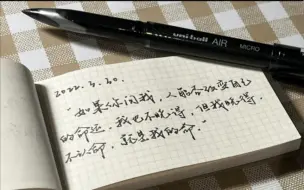 uni-ball AIR MICRO
2022.3.30.
"如果你问我,人能不能改变自己
的命运,我也不晓得,但我晓得,
不认命,就是我的命."